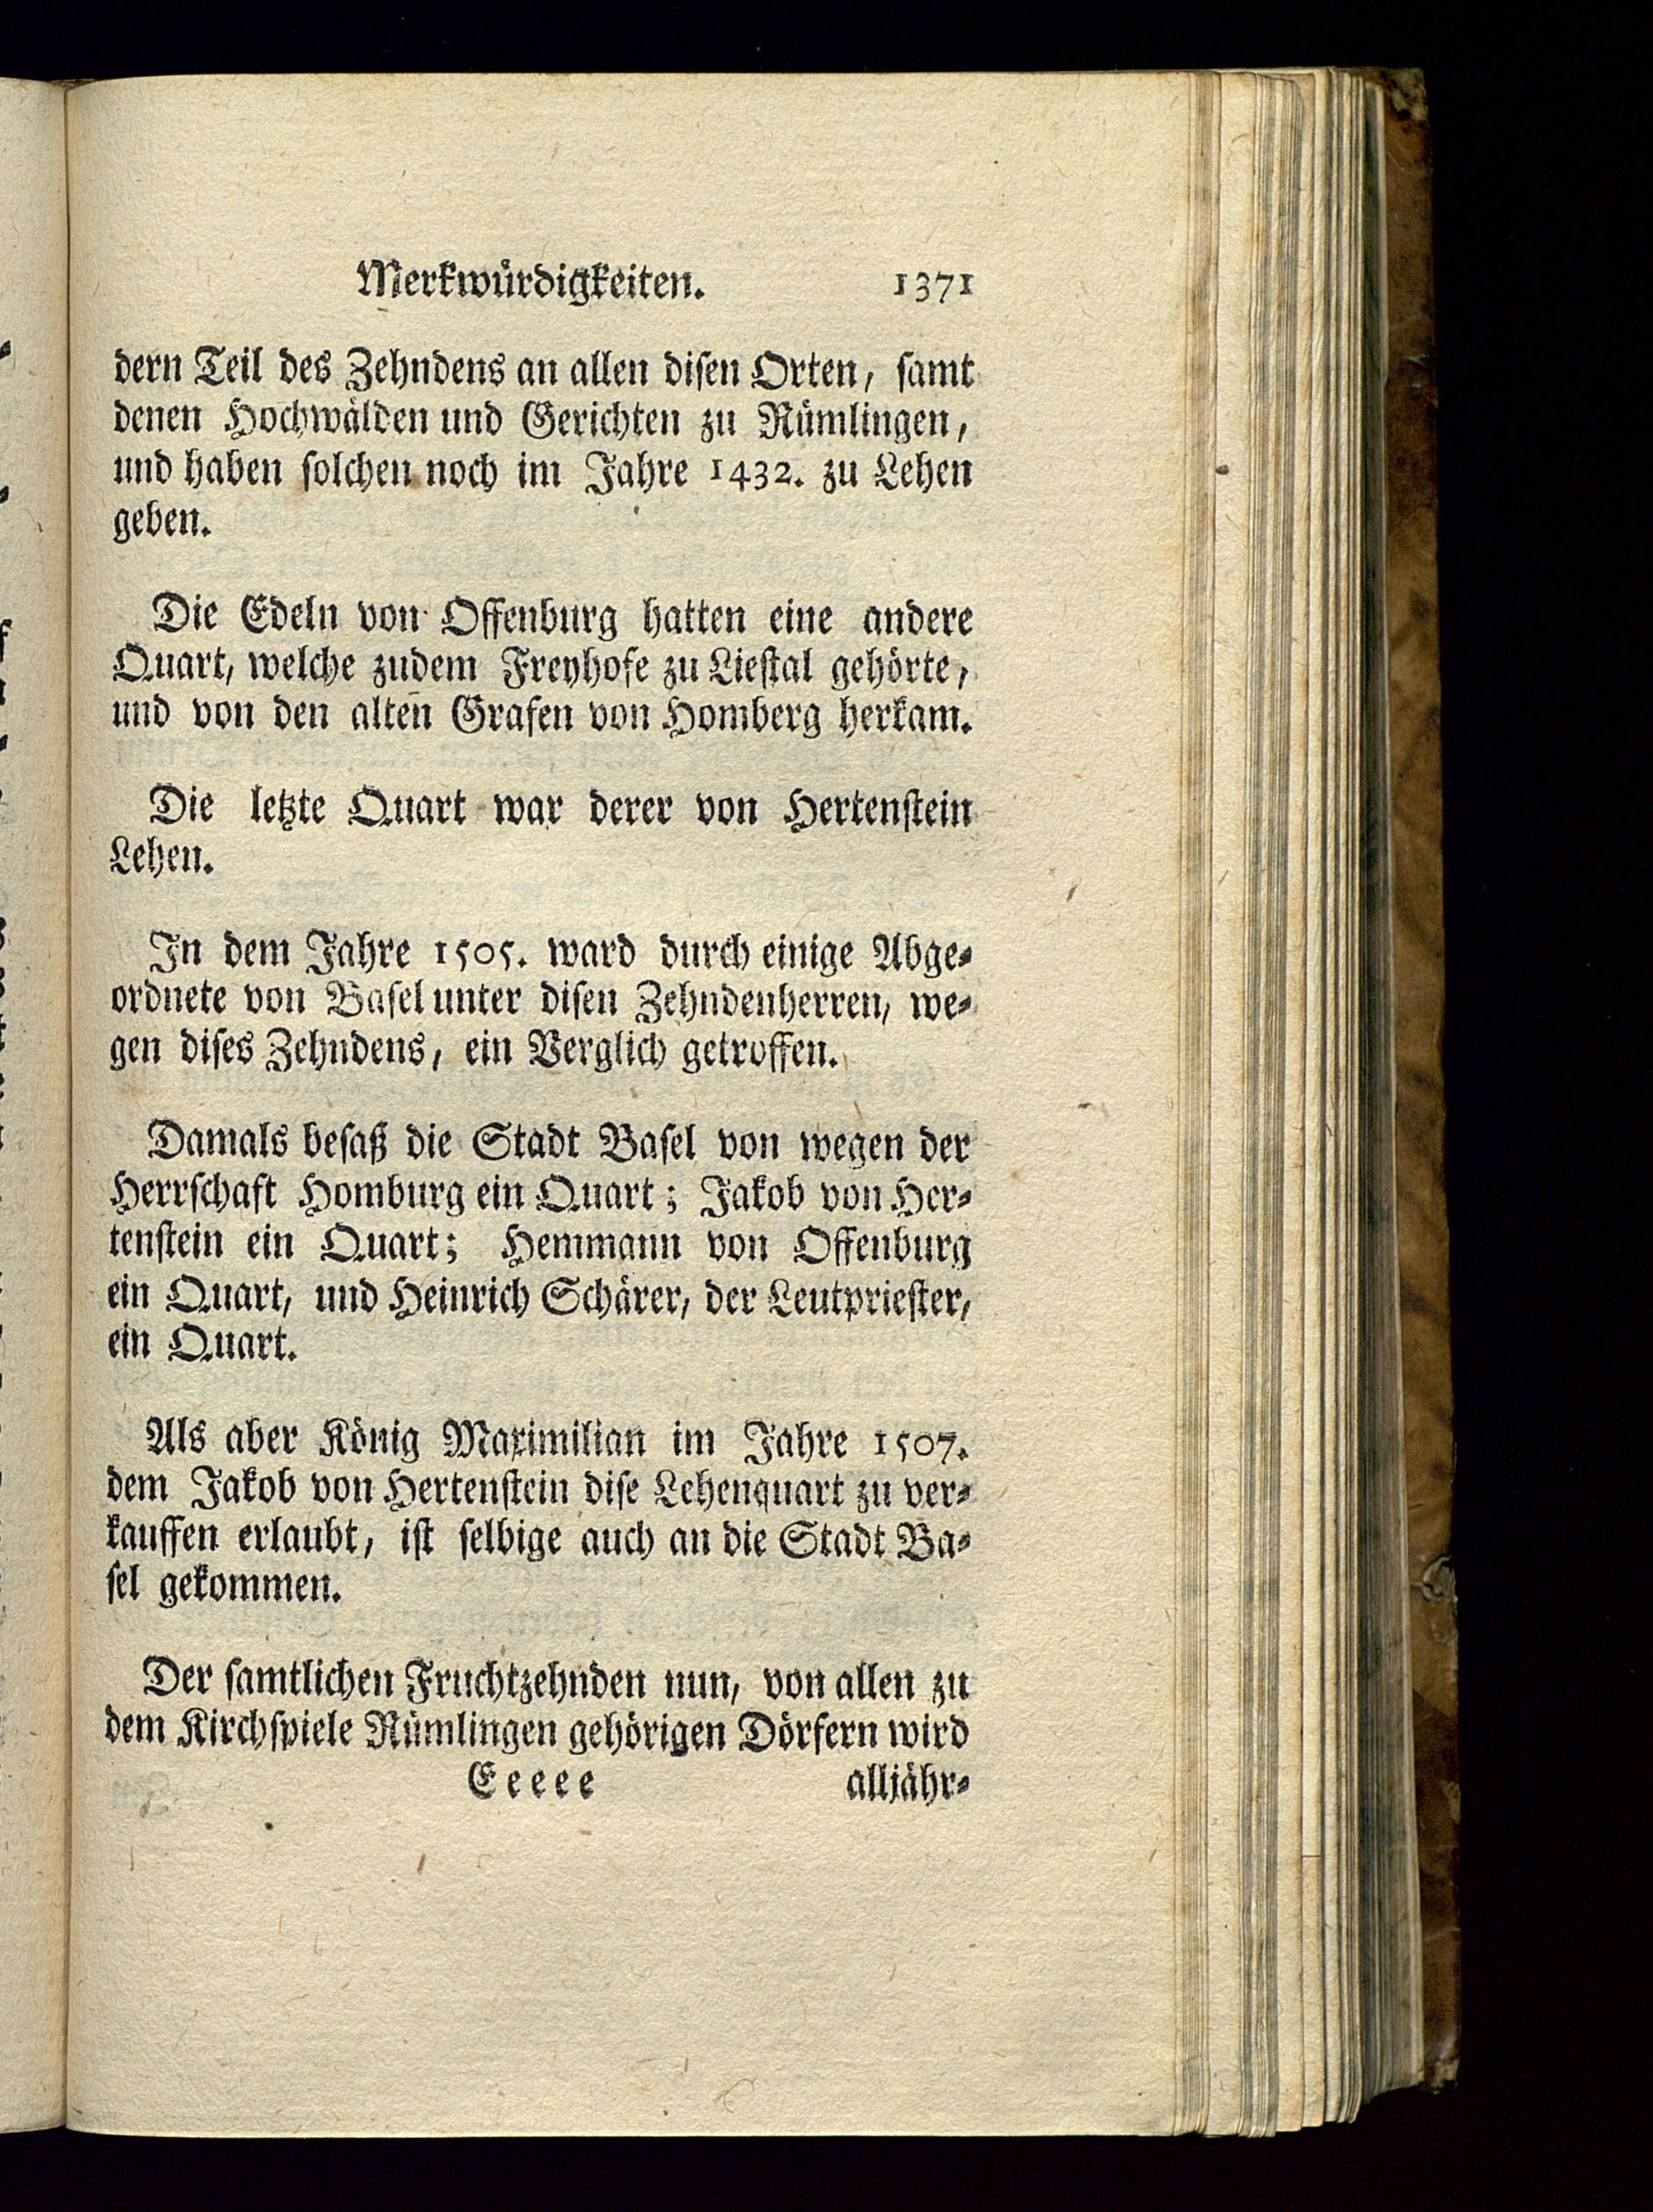 Merkwürdigkeiten. 1371
dern Teil des Zehndens an allen disen Orten, samt
denen Hochwälden und Gerichten zu Rümlingen,
und haben solchen noch im Jahre 1432. zu Lehen
geben.
Die Edeln von Offenburg hatten eine andere
Quart, welche zudem Freyhofe zu Liestal gehörte,
und von den alten Grafen von Homberg herkam.
Die letzte Quart war derer von Hertenstein
Lehen.
In dem Jahre 1505. ward durch einige Abge-
ordnete von Basel unter disen Zehndenherren, we-
gen dises Zehndens, ein Verglich getroffen.
Damals besaß die Stadt Basel von wegen der
Herrschaft Homburg ein Quart; Jakob von Her-
tenstein ein Quart; Hemmann von Offenburg
ein Quart, und Heinrich Schärer, der Leutpriester,
ein Quart.
Als aber König Maximilian im Jahre 1507.
dem Jakob von Hertenstein dise Lehenquart zu ver-
kauffen erlaubt, ist selbige auch an die Stadt Ba-
sel gekommen.
Der samtlichen Fruchtzehnden nun, von allen zu
dem Kirchspiele Rümlingen gehörigen Dörfern wird
Eeeee alljähr-